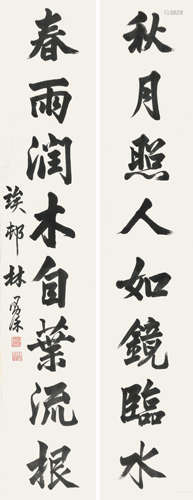 秋月照人如鏡臨水
春雨潤木自葉流根